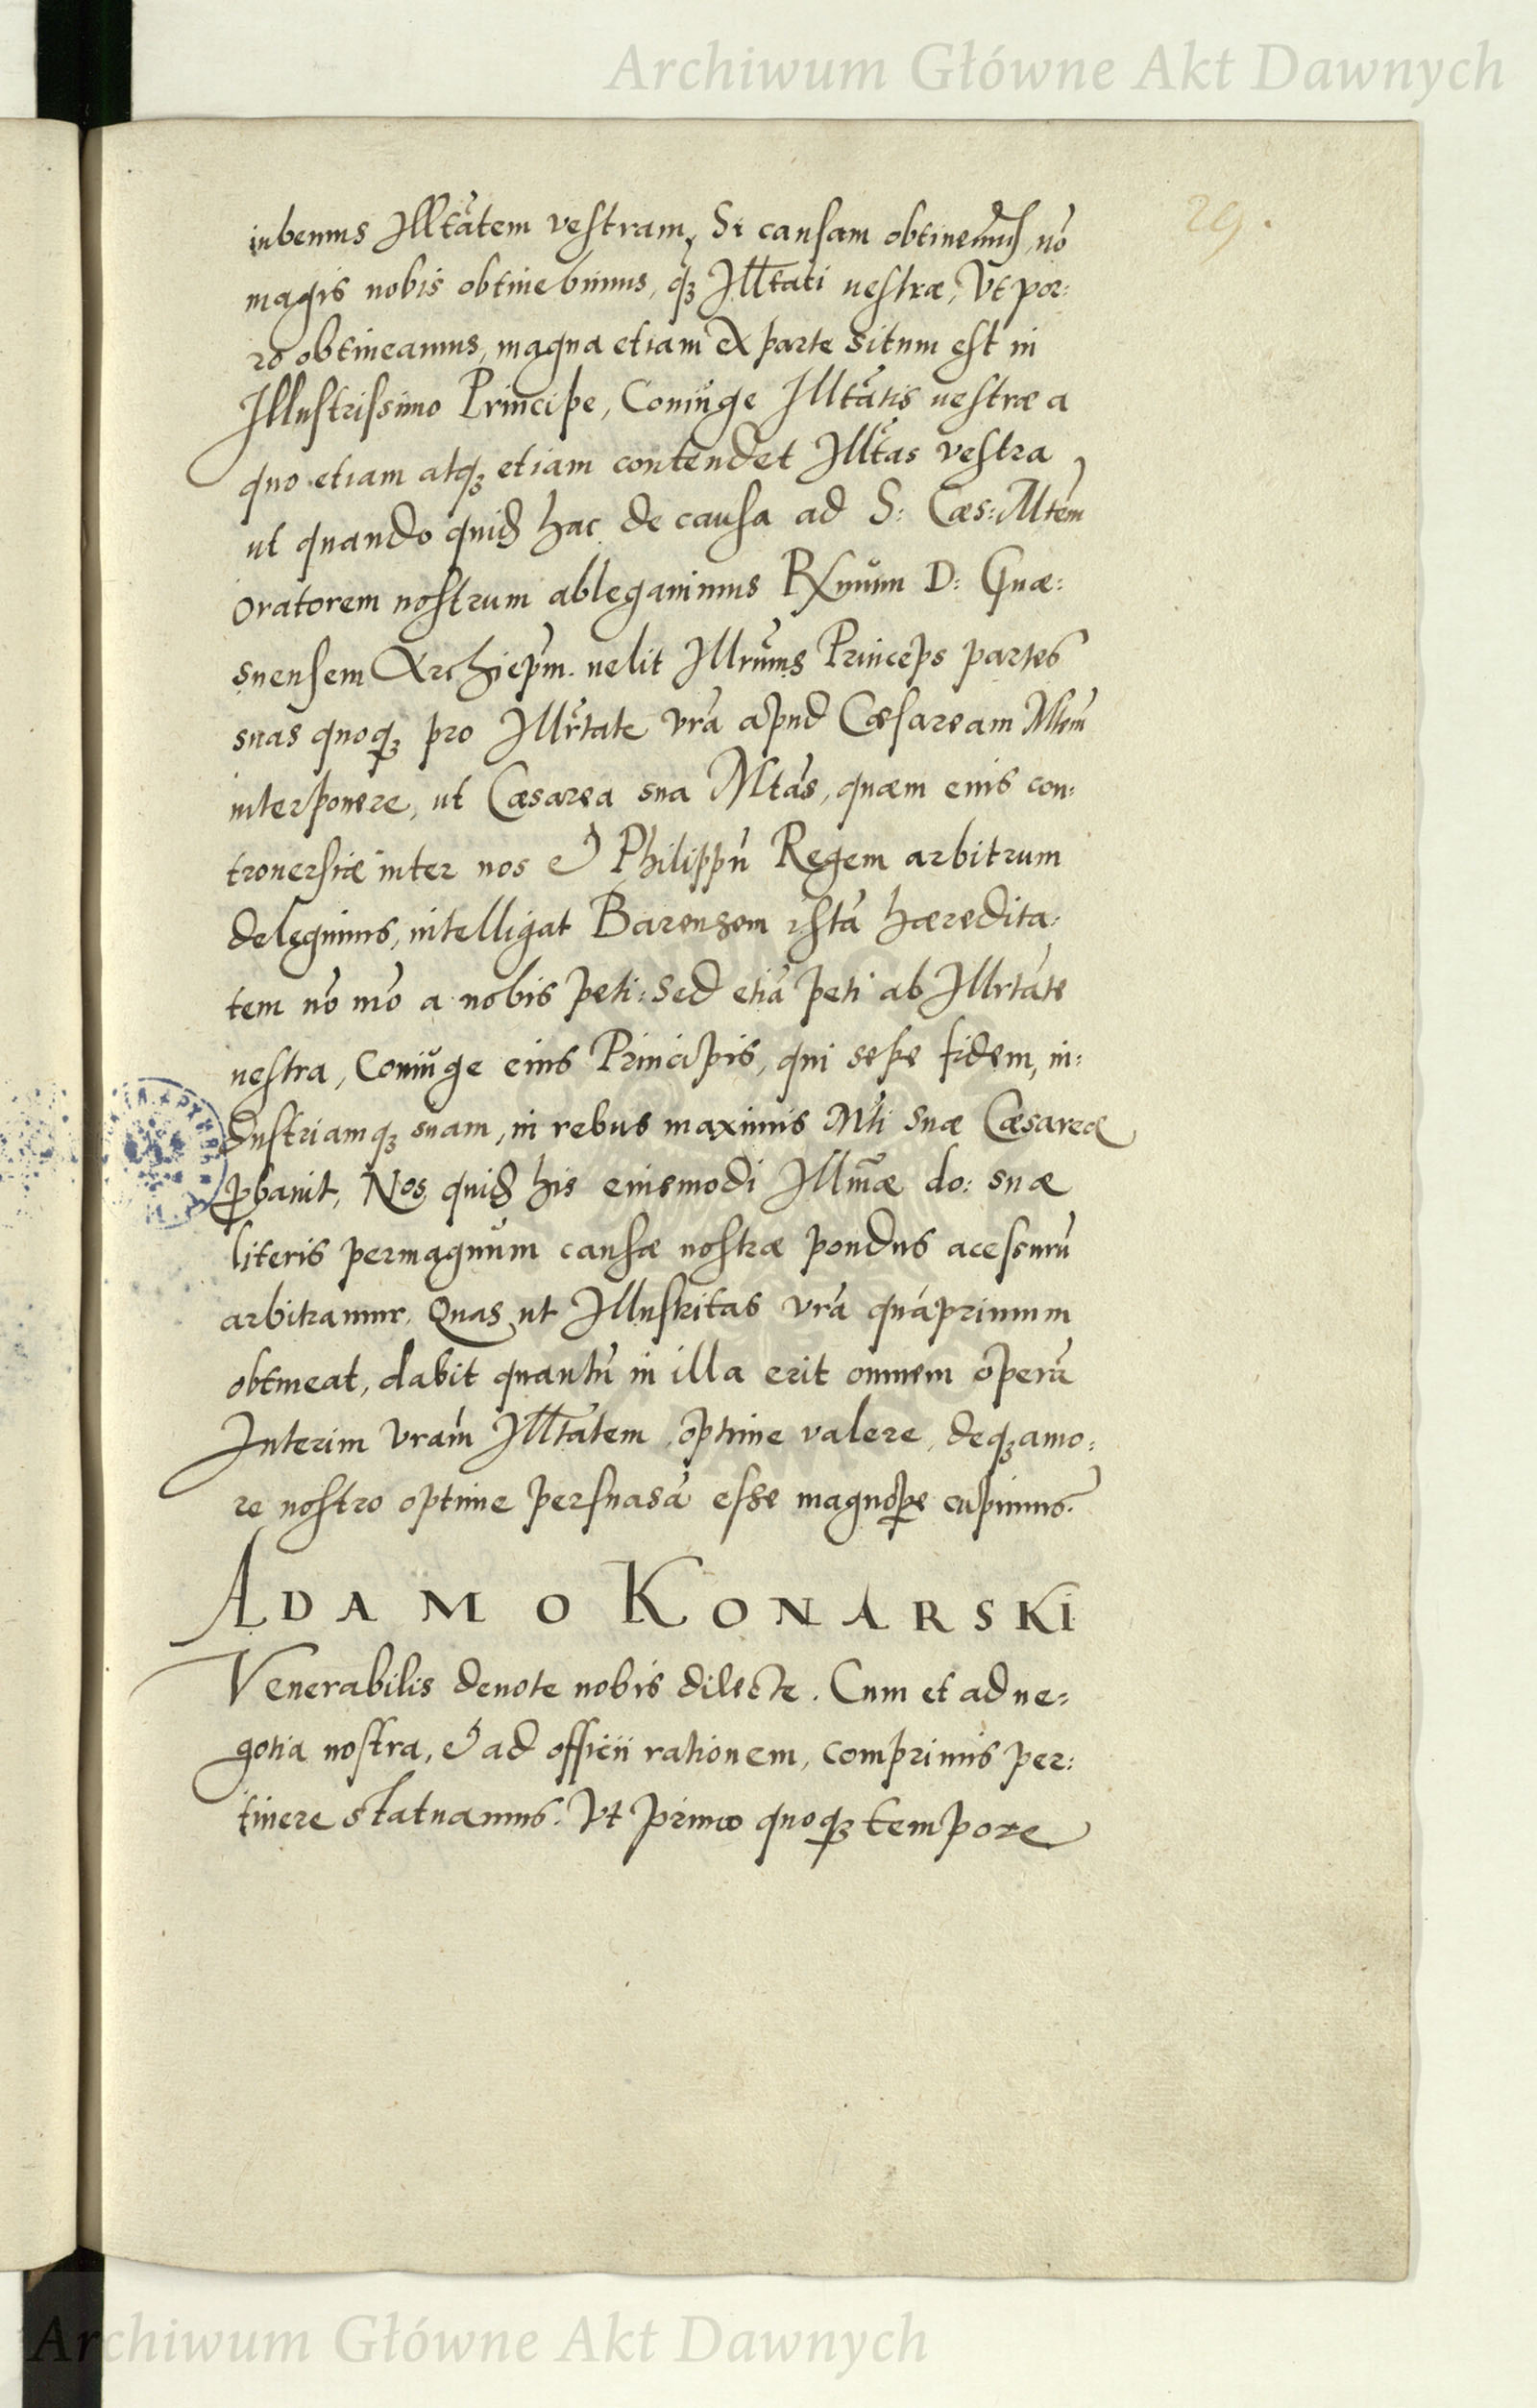 Archiwum Główne Akt Dawnych
29.
iubemus Illtãtem vestram, Si causam obtinemus, nõ
magis nobis obtinebimus, q̃ȝ Illtati uestræ, Vt por:
ro obtineamus, magna etiam ex parte situm est in
Illustrissimo Principe, Coniũge Illtãtis uestræ a
quo etiam atqȝ etiam contendet Illtãs vestra
ut quando quid̃ hac de causa ad S: Cæs: Mtẽm
oratorem nostrum ablegauimus Rx̃mum D: Gnæ:
snensem Archiep̃m. uelit Illrũms Princeps partes
suas quoqȝ pro Illr̃tate vrã apud Cæsaream Mtẽm
interponere, ut Cæsarea sua Mtãs, quæm eius con:
trouersiæ inter nos et Philippũ Regem arbitrum
delegimus, intelligat Barensem istã hæredita:
tem nõ mõ a nobis peti: sed etiã peti ab Illrtãte
uestra, Coniũge eius Principis, qui sepe fidem, in:
dustriamqȝ suam, in rebus maximis Mti suæ Cæsareæ
p̃bauit, Nos quid̃ his eiusmodi Illmæ do: suæ
literis permagnum causæ nostræ pondus acessurũ
arbitramur. Quas ut Illustritas vrã quãprimum
obtineat, dabit quantũ in illa erit omnem operã
Interim vrãm Illtãtem optime valere, deqȝ amo:
re nostro optime persuasã esse magnop̃e cupimus.
ADAMO KONARSKI
Venerabilis deuote nobis dilecte. Cum et ad ne:
gotia nostra, et ad officii rationem, comprimis per:
tinere statuamus. Vt primo quoqȝ tempore
Archiwum Główne Akt Dawnych